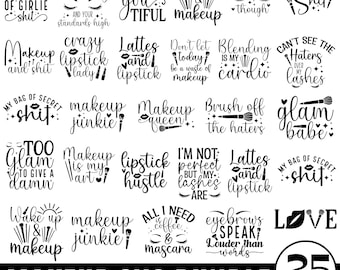 OF GIRLIE
shit
AND YOUR
STANDARDS HIGH
girl
TIFUL
makeup
though
Makeup
and shit
crazy
lipstick
lady
Lattes
and
lipstick
Don't let
today
be a waste of makeup
Blending
IS MY
cardio
CAN'T SEE THE
Haters
OVER MY
lashes
MY BAG OF SECRET
shit
makeup
junkie
Makeup
queen
Brush off
the haters
glam
babe
TOO
Glam
TO GIVE A
damn
Makeup
IS MY
art
lipstick
hustle
I'M NOT
perfect
BUT MY
lashes
ARE
Lattes
and
lipstick
MY BAG OF SECRET
shit
Wake up
&
makeup
makeup
junkie
ALL I NEED
coffee
&
mascara
eyebrows
SPEAK
Louder than
words
LOVE
25